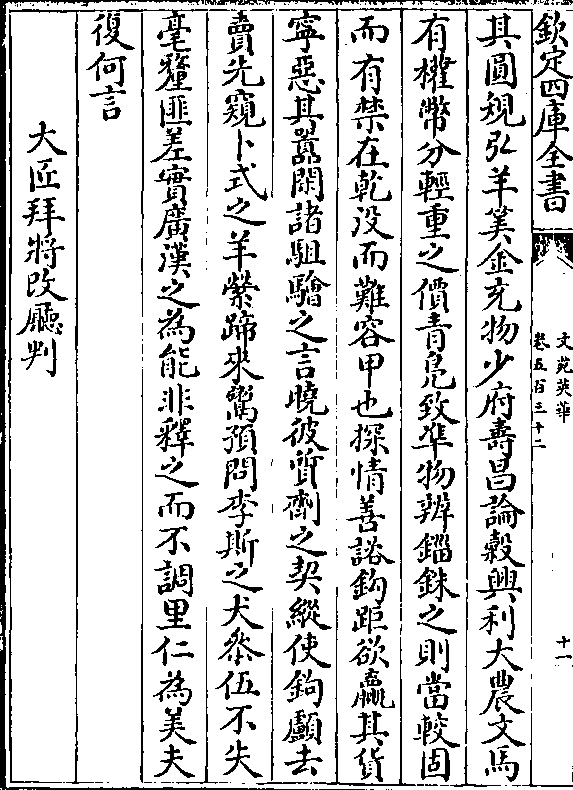 欽定四庫全書
文苑英華
卷五百三十二
十一
其圓規弘羊筭金充物少府壽昌論穀興利大農文馬
有權幣分輕重之價青鳧致準物辨錙銖之則當較固
而有禁在乾沒而難容甲也探情善詻鈎距欲贏其貨
寧惡其嚚閑諸駔驓之言曉彼質劑之契縱使鉤屬去
賣先窺卜式之羊縈蹄來鬻預問李斯之犬叅伍不失
毫釐匪差實廣漢之為能非釋之而不調里仁為美夫
復何言
大匠拜將改廳判